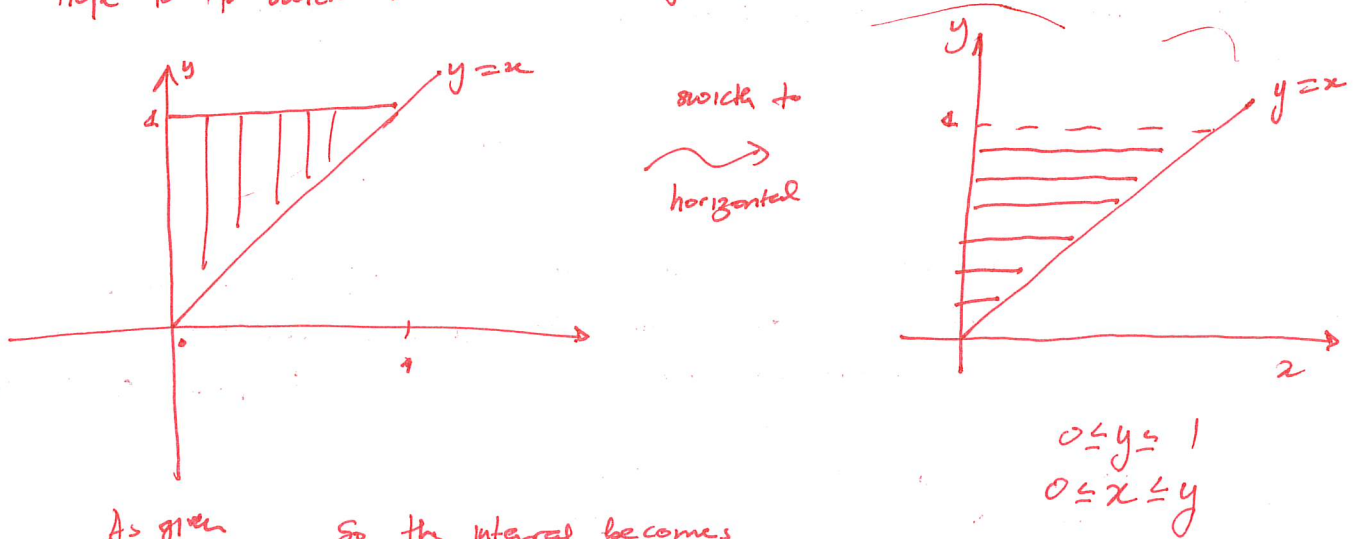 y
y = x
1
0
1
switch to
horizontal
y
y = x
1
x
0 ≤ y ≤ 1
0 ≤ x ≤ y
As given So the integral becomes